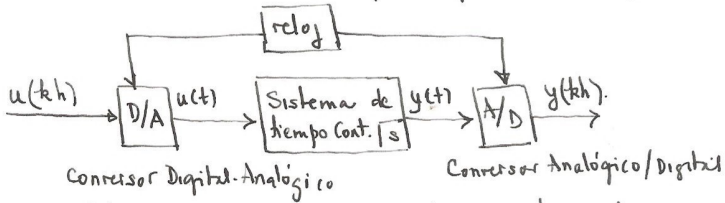 reloj
u(kh)
D/A
u(t)
Sistema de
tiempo Cont. s
y(t)
A/D
y(kh).
Conversor Digital-Analógico
Conversor Analógico/Digital